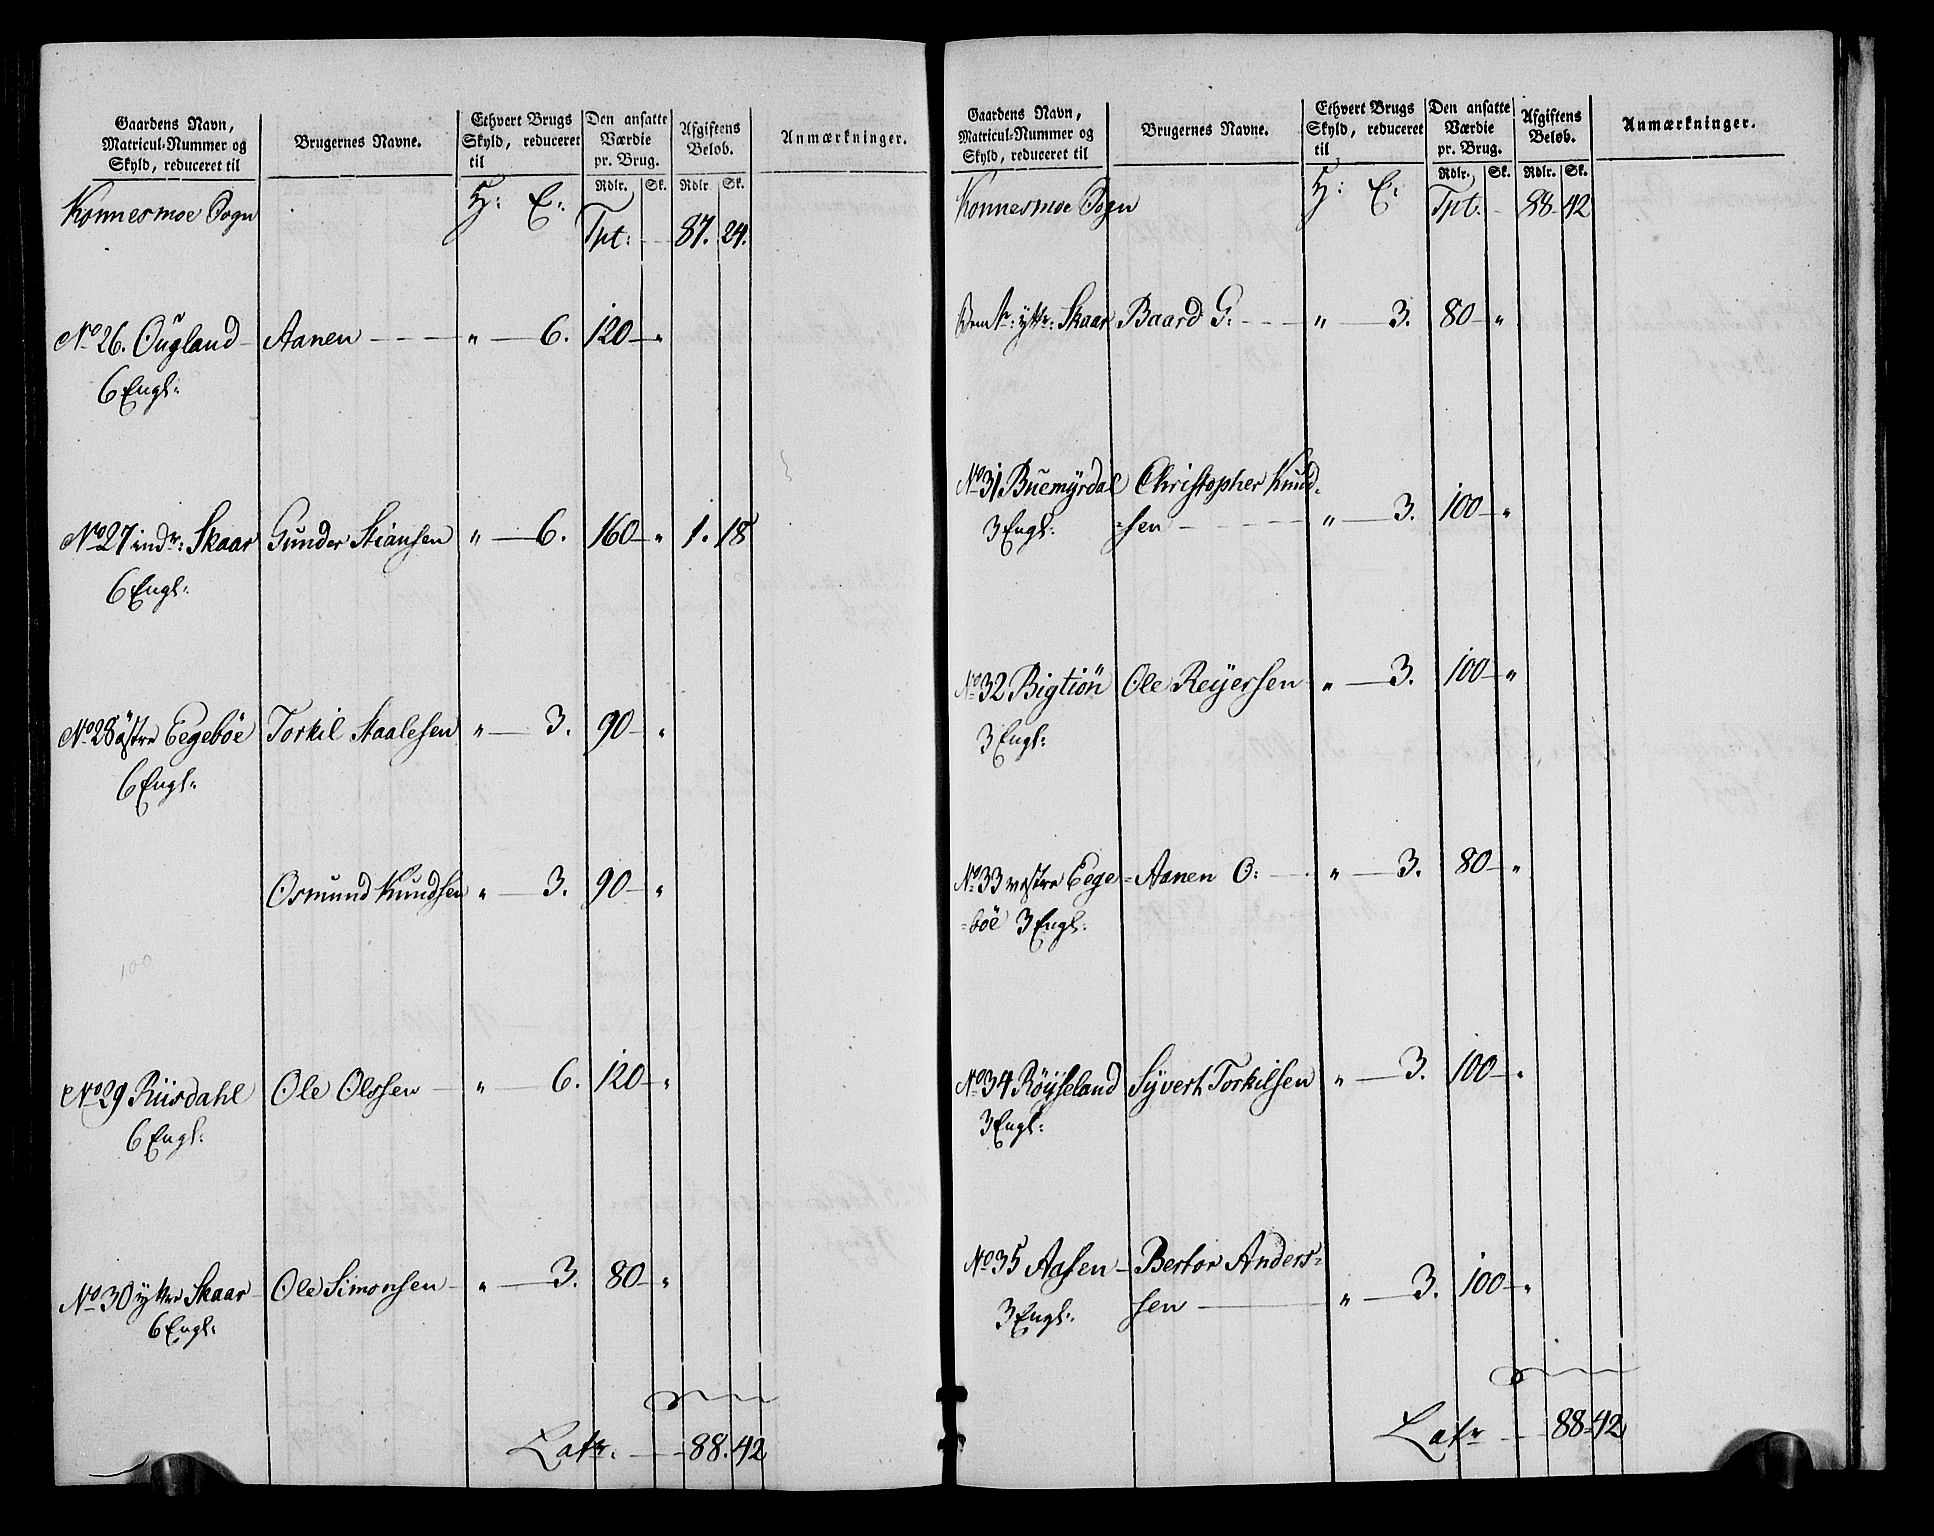 Gaardens Navn,
Matricul-Nummer og
Skyld, reduceret til
Brugernes Navne.
Ethvert Brugs
Skyld, reduceret
til
Den ansatte
Værdie
pr. Brug.
Afgiftens
Beløb.
Anmærkninger.
Rdlr. Sk. Rdlr. Sk.
Konnesmoe Sogn H: E: Tpt: 87. 24.
No 26. Ougland Aanen " 6. 120 "
6 Engl:
No 27 indr: Skaar Gunder Stiansen " 6. 160 " 1. 18
6 Engl:
No 28 östre Eegeböe Torkil Staalesen " 3. 90 "
6 Engl:
Osmund Knudsen " 3. 90 "
100
No 29 Riisdahl Ole Olssen " 6. 120 "
6 Engl:
No 30 yttre Skaar Ole Simonsen " 3. 80 "
6 Engl:
Latr. 88. 42
Gaardens Navn,
Matricul-Nummer og
Skyld, reduceret til
Brugernes Navne.
Ethvert Brugs
Skyld, reduceret
til
Den ansatte
Værdie
pr. Brug.
Afgiftens
Beløb.
Anmærkninger.
Rdlr. Sk. Rdlr. Sk.
Konnesmoe Sogn H: E: Tpt. 88 42
yttr: Skaar Baard G: " 3. 80 "
No 31 Buemyrdal Christopher Knud-
3 Engl: =sen " 3. 100 "
No 32 Bigtiön Ole Reyersen " 3. 100 "
3 Engl:
No 33 vestre Eege= Aanen O: " 3. 80 "
=böe 3 Engl:
No 34 Röyseland Syvert Torkilsen " 3. 100 "
3 Engl:
No 35 Aasen Bertor Anders=
3 Engl: sen " 3. 100 "
Latr 88 42